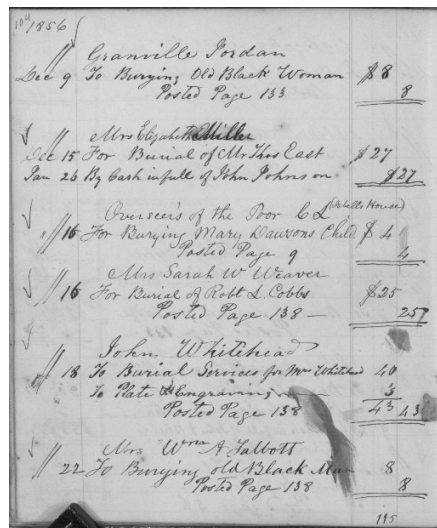 104
1856
// Granville Jordan
Dec 9 To Burying Old Black Woman $8
Posted Page 133 8
// Mrs Elizabeth Miller
Dec 15 For Burial of Mr Thos East $27
Jan 26 By Cash in full of John Johnson $27
Overseer's of the Poor C L
// 16 For Burying Mary Dawsons Child $4
Posted Page 9 4
Mrs Sarah W Weaver
// 16 For Burial of Robt L. Cobbs $25
Posted Page 138 — 25
John Whitehead
// 18 To Burial Services for Mrs Whitehead 40
To Plate & Engraving 3
Posted Page 138 43 43
Mrs Wm A Talbott
// 22 To Burying old Black Man 8
Posted Page 138 8
115